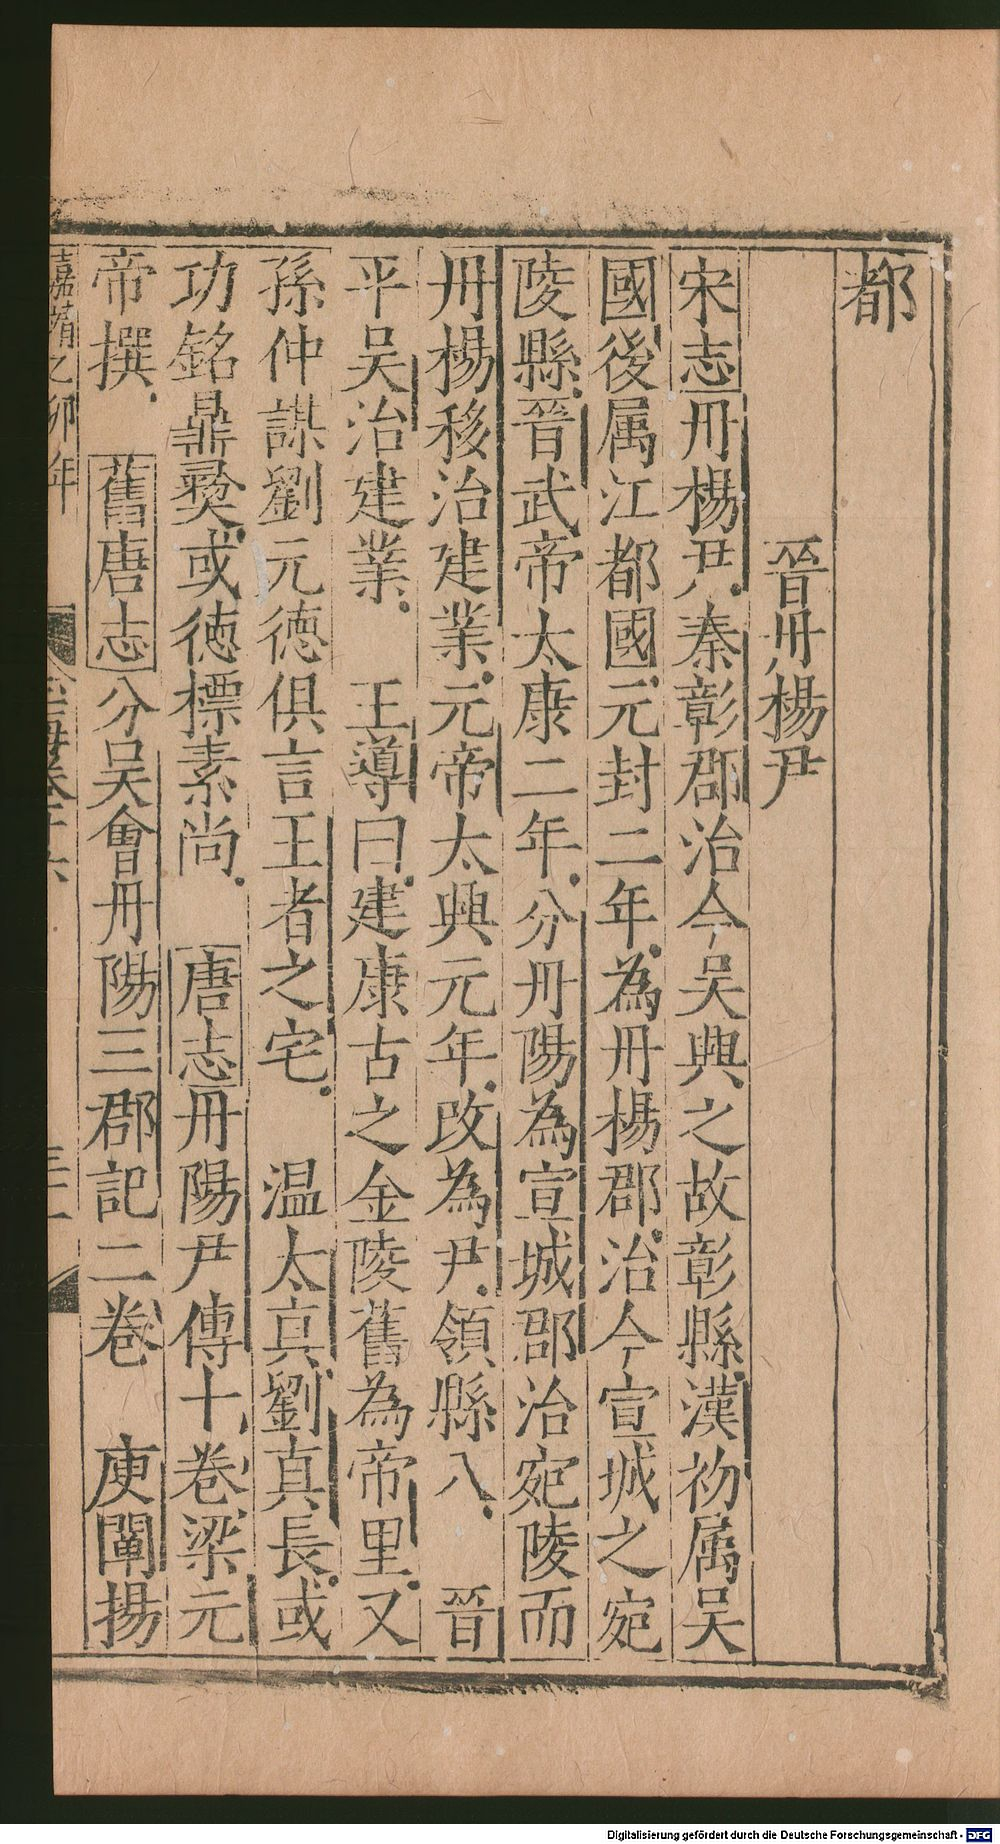 都
晉丹楊尹
宋志丹楊尹秦彰郡治今吳興之故彰縣漢初属吳
國後属江都國元封二年為丹楊郡治今宣城之宛
陵縣晉武帝太康二年分丹陽為宣城郡治宛陵而
丹楊移治建業元帝太興元年改為尹領縣八　晉
平吳治建業　王導曰建康古之金陵舊為帝里又
孫仲謀劉元徳俱言王者之宅　温太真劉真長或
功銘鼎彛或徳標素尚　唐志丹陽尹傳十卷梁元
帝撰　舊唐志分吳會丹陽三郡記二卷　庾闡揚
嘉靖乙卯年
Digitalisierung gefördert durch die Deutsche Forschungsgemeinschaft - DFG